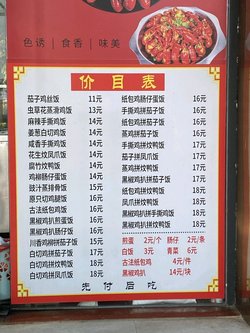 色诱 | 食香 | 味美
价目表
茄子鸡丝饭 11元
虫草花蒸滑鸡饭 13元
麻辣手撕鸡饭 14元
姜葱白切鸡饭 14元
咸香手撕鸡饭 14元
花生炆凤爪饭 14元
腐竹炆鸭饭 14元
鸡柳肠仔蛋饭 14元
豉汁蒸排骨饭 15元
原只切鸡腿饭 16元
古法纸包鸡饭 16元
黑椒鸡扒煎蛋饭 16元
川香鸡柳拼茄子饭 16元
白切鸡拼茄子饭 17元
白切鸡拼炆鸭饭 18元
白切鸡拼凤爪饭 18元
纸包鸡肠仔蛋饭 16元
手撕鸡拼茄子饭 16元
蒸鸡拼茄子饭 16元
纸包鸡拼茄子饭 16元
茄子拼凤爪饭 17元
蒸鸡拼炆鸭饭 17元
黑椒鸡扒拼茄子饭 17元
纸包鸡拼炆鸭饭 17元
手撕鸡拼炆鸭饭 17元
凤爪拼炆鸭饭 18元
黑椒鸡扒拼手撕鸡饭 18元
黑椒鸡扒拼炆鸭饭 18元
煎蛋 2元/个 肠仔 2元/条
白饭 3元 青菜 6元
古法纸包鸡 4元/件
黑椒鸡扒 14元/块
先付后吃